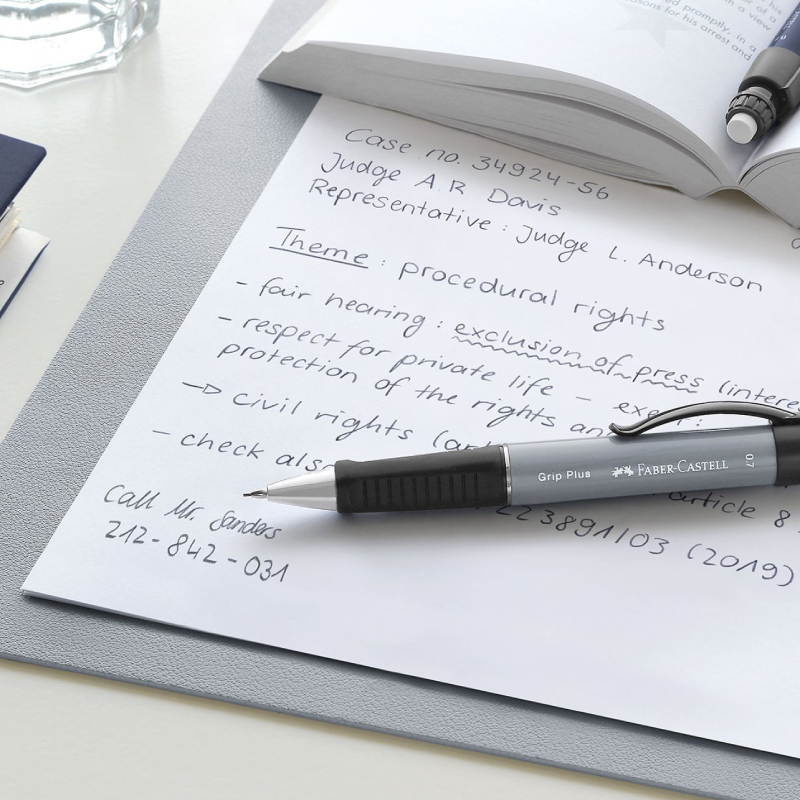 of a
with a view
ed promptly, in a
sons for his arrest and
Case no. 34924-56
Judge A.R. Davis
Representative : Judge L. Anderson
Theme : procedural rights
- fair hearing : exclusion of press (intere
- respect for private life - exe
protection of the rights an
civil rights (art
- check als
article 8
223891/03 (2019)
Call Mr. Sanders
212-842-031
Grip Plus FABER-CASTELL 0.7